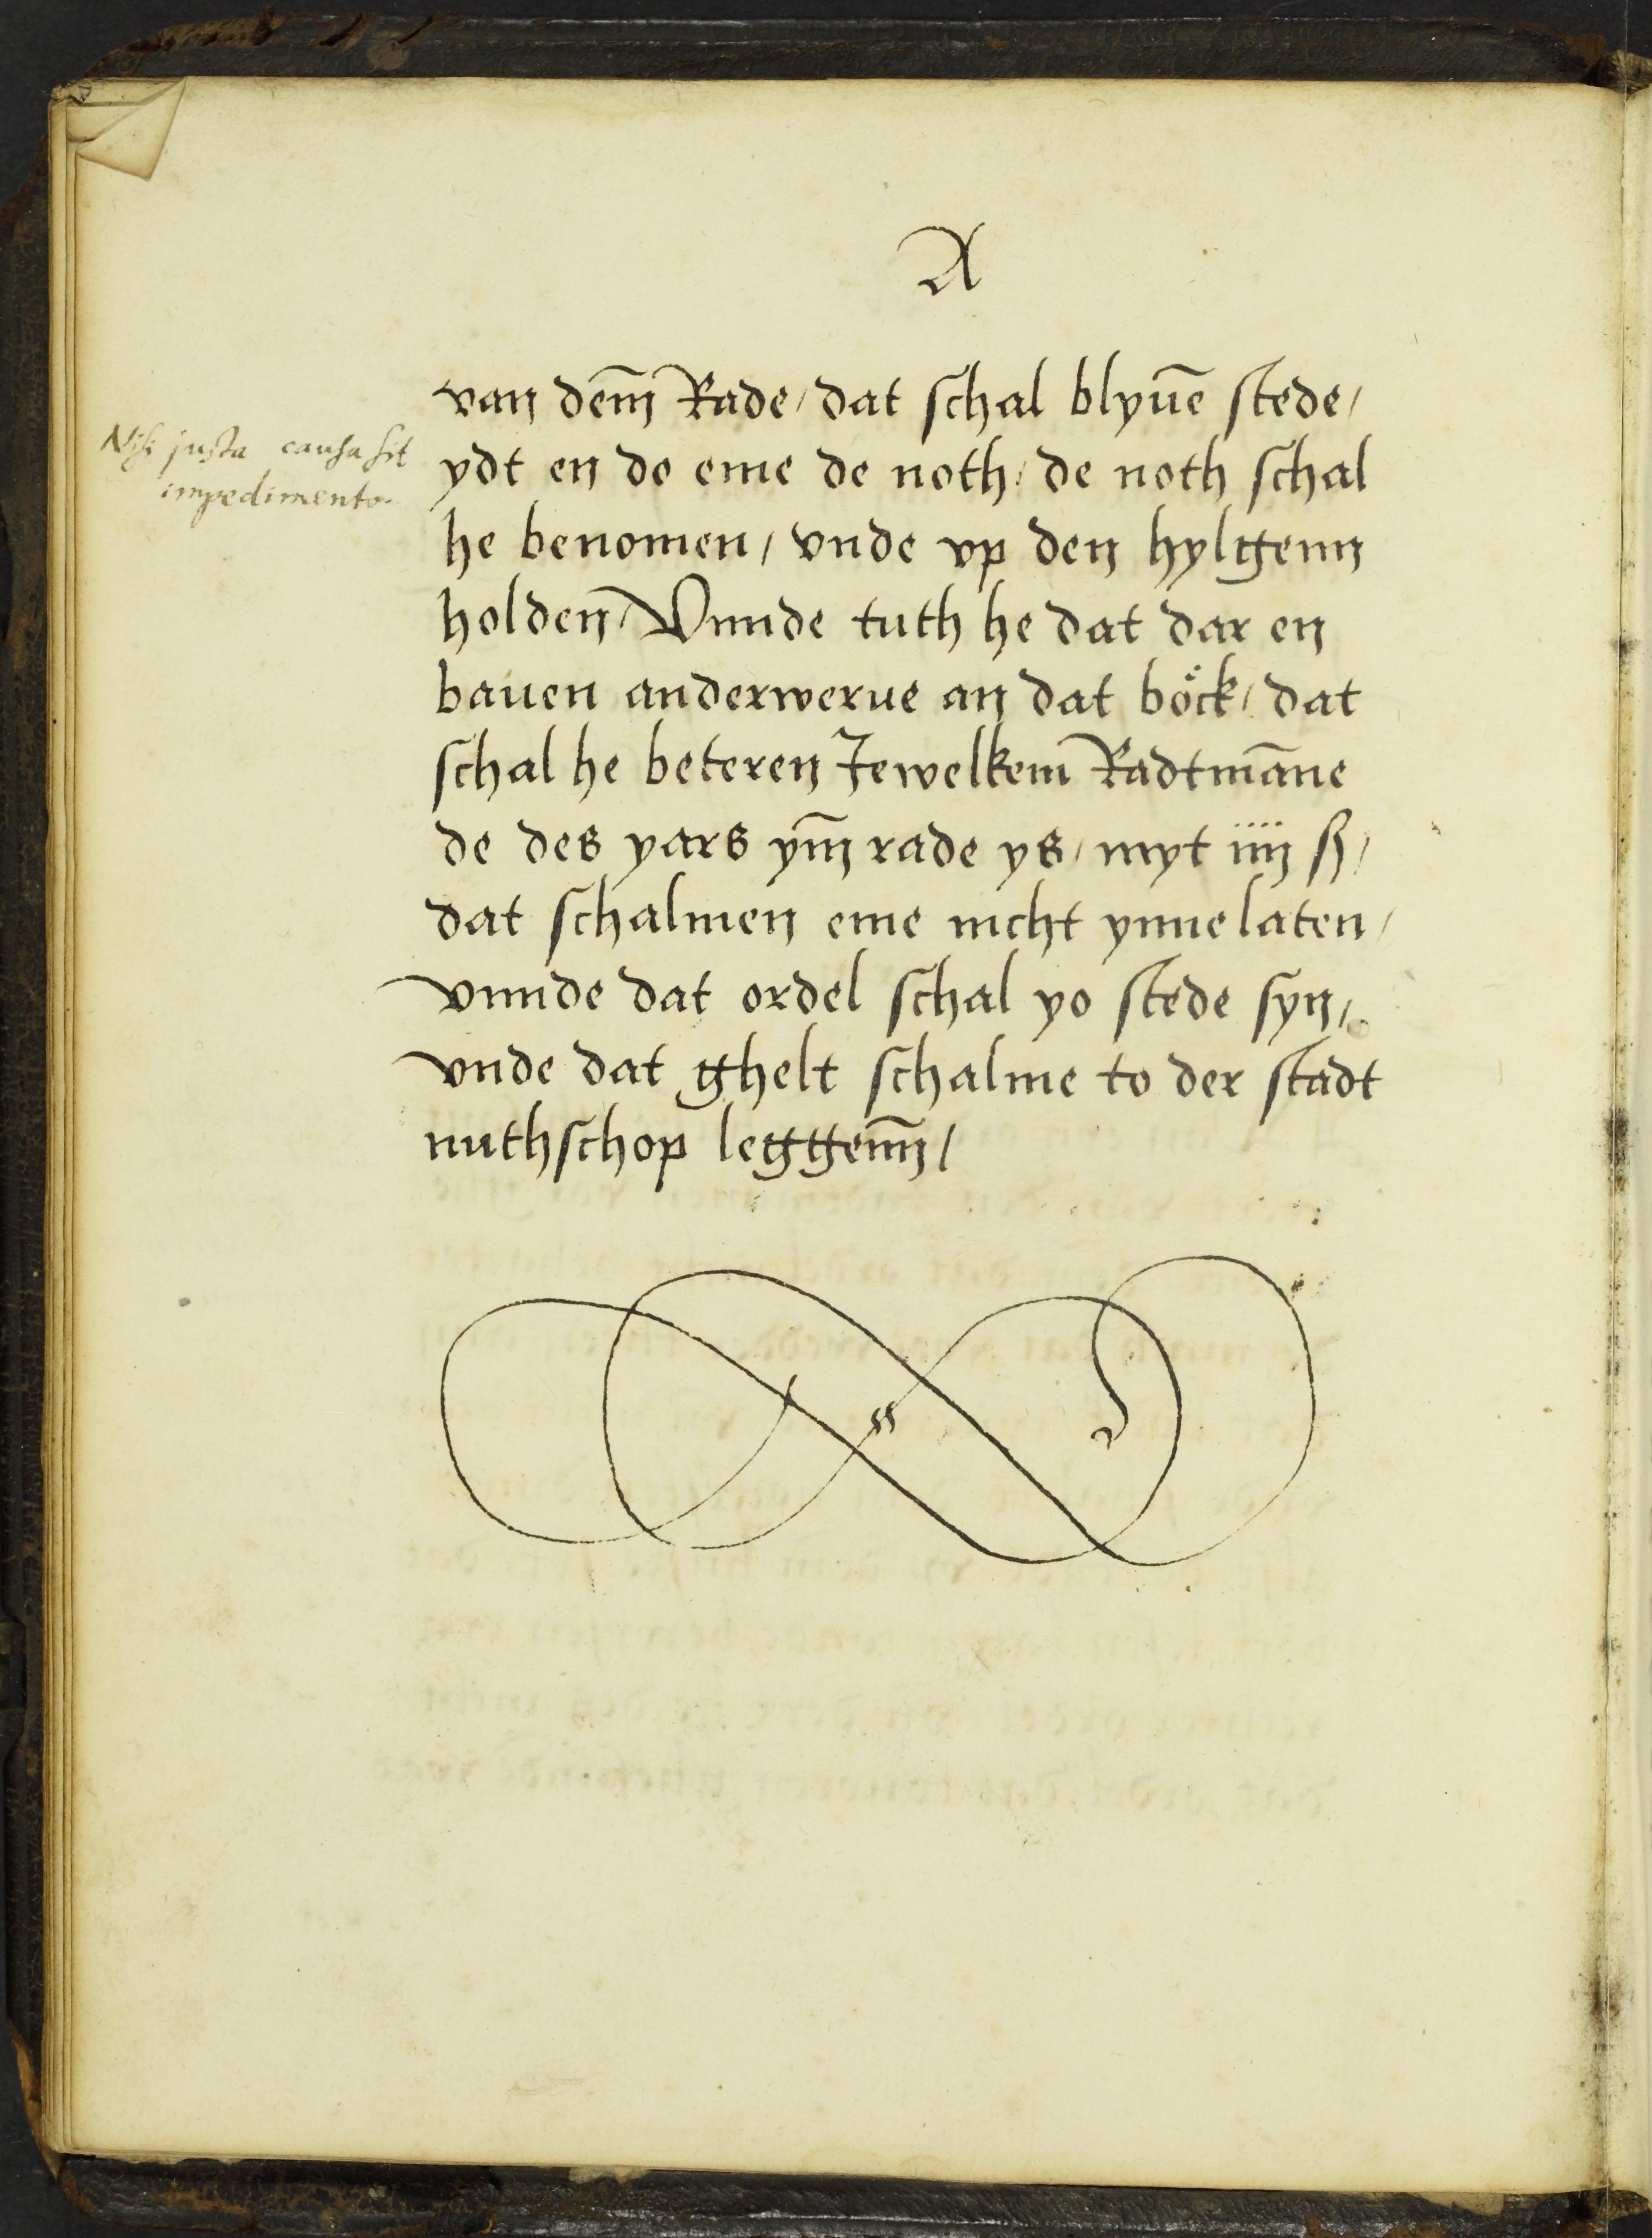 A
van dem̄ Rade / dat schal blyuē stede /
Nisi justa causa sit
impedimento.
ydt en do eme de noth / de noth schal
he benomen / vnde vp den hylgenn
holden / Vnnde tuth he dat dar en
bauen anderwerue an dat bo̊ck / dat
schal he beteren Jewelkem Radtmāne
de des yars ym̄ rade ys / myt iiij ß /
dat schalmen eme nicht ynne laten /
vnnde dat ordel schal yo stede syn /
vnde dat ghelt schalme to der stadt
nuthschop leggenn̄ /